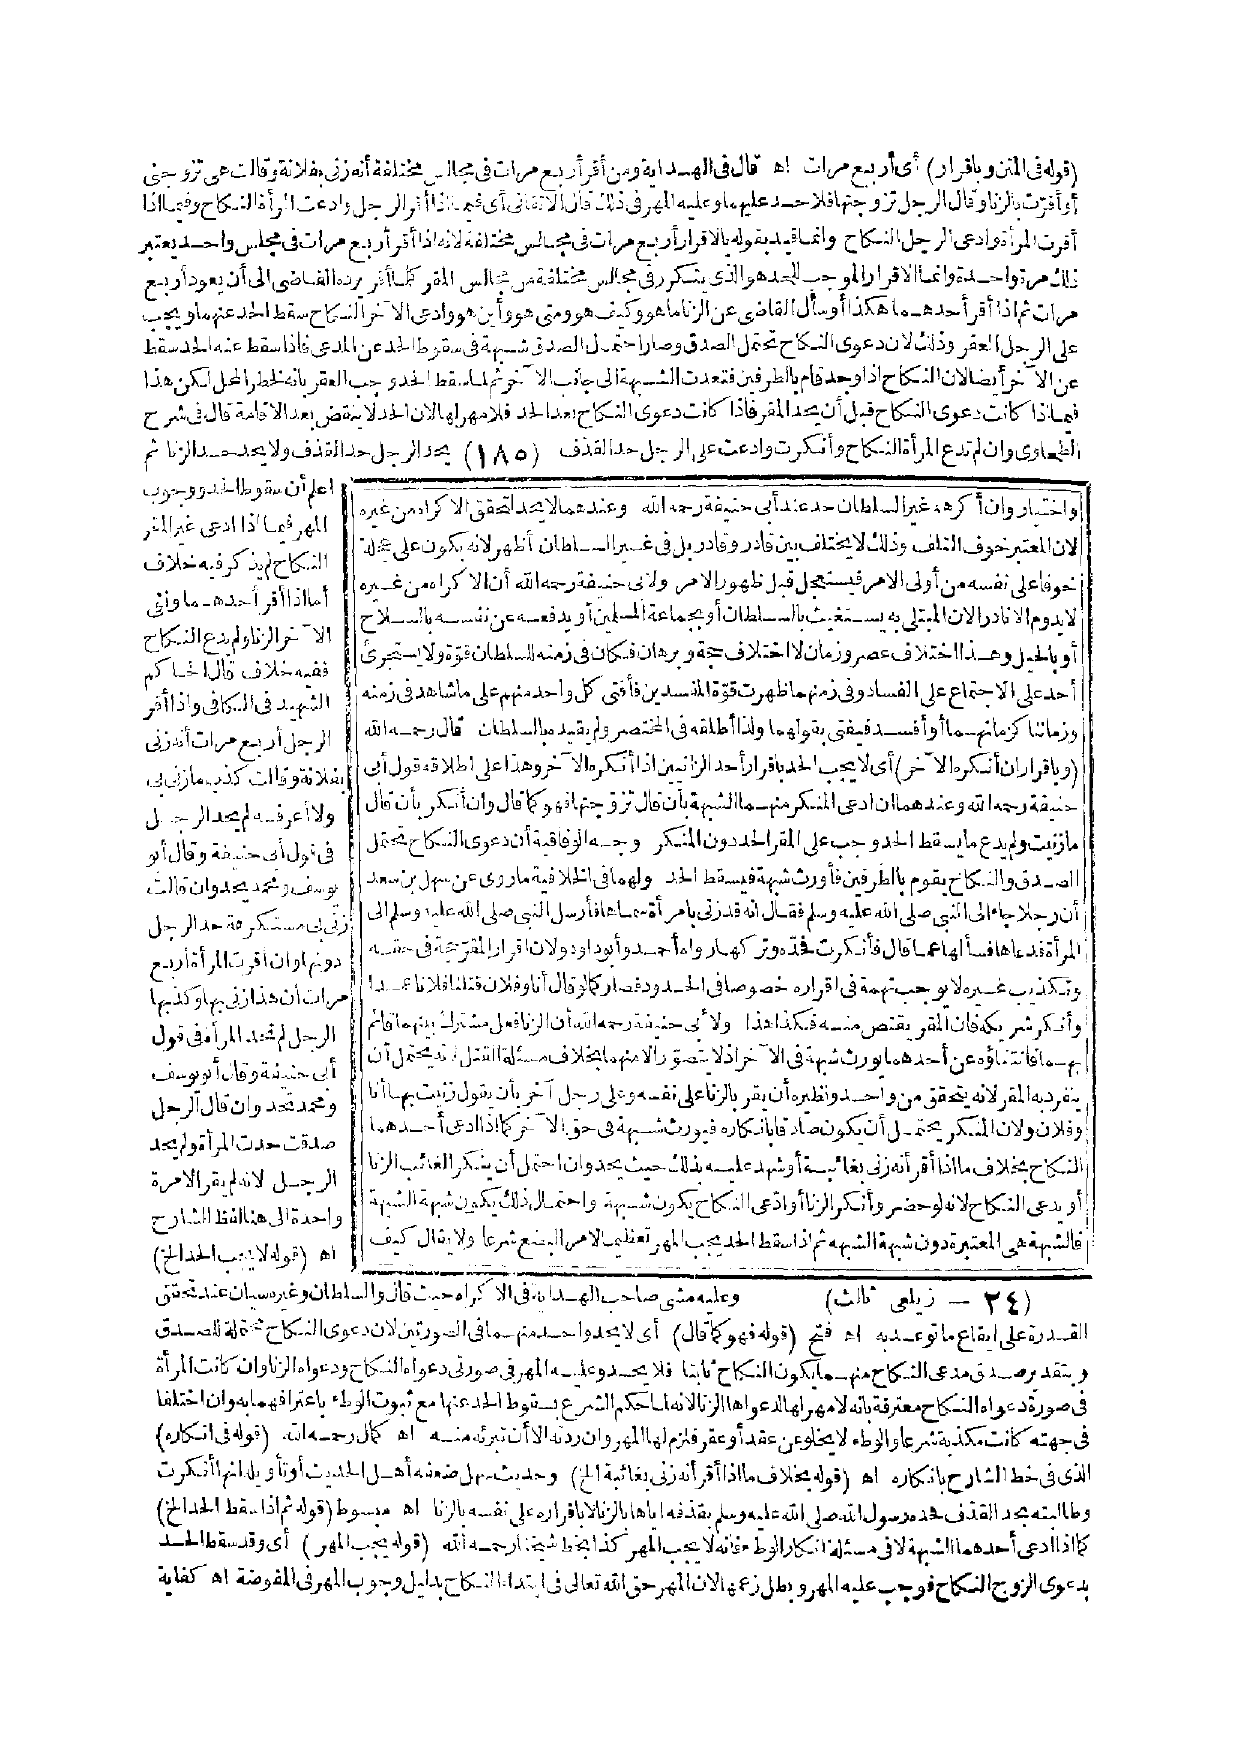 (قوله في المتن وباقرار) أى أربع مرات اه قال في الهداية ومن أقر أربع مرات في مجالس مختلفة أنه زنى بفلانة وقالت هى تزوجنى
أو أقرت بالزنا وقال الرجل تزوجتها فلا حد عليهما وعليه المهر في ذلك قال الاتقانى أى فيما اذا أقر الرجل وادعت المرأة النكاح وفيما اذا
أقرت المرأة وادعى الرجل النكاح وانما قيد بقوله بالاقرار أربع مرات في مجالس مختلفة لانه اذا أقر أربع مرات في مجلس واحد يعتبر
ذلك مرة واحدة وانما الاقرار الموجب للحد هو الذى يتكرر في مجالس مختلفة من مجالس المقر كلما أقر برده القاضى الى أن يعود أربع
مرات ثم اذا أقر أحدهما هكذا أو سأل القاضى عن الزنا ما هو وكيف هو ومتى هو وأين هو وادعى الآخر النكاح سقط الحد عنهما ويجب
على الرجل العقر وذلك لان دعوى النكاح تحتمل الصدق وصار احتمال الصدق شبهة في سقوط الحد عن المدعى فاذا سقط عنه الحد سقط
عن الآخر أيضا لان النكاح اذا وجد قام بالطرفين فتعدت الشبهة الى جانب الآخر ثم لما سقط الحد وجب العقر بانه لخطر المحل لكن هذا
فيما اذا كانت دعوى النكاح قبل أن يحد المقر فاذا كانت دعوى النكاح بعد الحد فلا مهر لها لان الحد لا ينقض بعد الاقامة قال في شرح
الطحاوى وان لم تدع المرأة النكاح وأنكرت وادعت على الرجل حد القذف (١٨٥) يحد الرجل حد القذف ولا يحد حد الزنا ثم
واختيار وان أكرهه غير السلطان حد عند أبى حنيفة رحمه الله وعندهما لا يحد لتحقق الاكراه من غيره
لان المعتبر خوف التلف وذلك لا يختلف بين قادر وقادر بل في غير السلطان أظهر لانه يكون على عجلة
خوفا على نفسه من أولى الامر فيستعجل قبل ظهور الامر ولابى حنيفة رحمه الله أن الاكراه من غيره
لا يدوم الا نادرا لان المبتلى به يستغيث بالسلطان أو بجماعة المسلمين أو يدفعه عن نفسه بالسلاح
أو بالحيل وهذا اختلاف عصر وزمان لا اختلاف حجة وبرهان فكان في زمنه للسلطان قوة ولا يستجرئ
أحد على الاجتماع على الفساد وفي زمنهما ظهرت قوة المفسدين فأفتى كل واحد منهم على ما شاهد في زمنه
وزماننا كزمانهما أو أفسد فيفتى بقولهما ولذا أطلقه في المختصر ولم يقيده بالسلطان قال رحمه الله
(وباقرار ان أنكره الآخر) أى لا يجب الحد باقرار أحد الزانيين اذا أنكره الآخر وهذا على اطلاقه قول أبى
حنيفة رحمه الله وعندهما ان ادعى المنكر منهما الشبهة بأن قال تزوجتها فهو كما قال وان أنكر بأن قال
ما زنيت ولم يدع ما يسقط الحد وجب على المقر الحد دون المنكر وجه الوفاقية أن دعوى النكاح تحتمل
الصدق والنكاح يقوم بالطرفين فأورث شبهة فيسقط الحد ولهما في الخلافية ما روى عن سهل بن سعد
أن رجلا جاء الى النبى صلى الله عليه وسلم فقال انه قد زنى بامرأة سماها فأرسل النبى صلى الله عليه وسلم الى
المرأة فدعاها فسألها عما قال فأنكرت فحده وتركها رواه أحمد وأبو داود ولان اقرار المقر حجة في حقه
وتكذيب غيره لا يوجب تهمة في اقراره خصوصا في الحدود فصار كما لو قال أنا وفلان قتلنا فلانا عمدا
وأنكر شريكه فان المقر يقتص منه فكذا هذا ولابى حنيفة رحمه الله أن الزنا فعل مشترك بينهما قائم
بهما فانتفاؤه عن أحدهما يورث شبهة في الآخر اذ لا يتصور الا منهما بخلاف مسئلة القتل لانه يحتمل أن
ينفرد به المقر لانه يتحقق من واحد ونظيره أن يقر بالزنا على نفسه وعلى رجل آخر بأن يقول زنيت بها أنا
وفلان ولان المنكر يحتمل أن يكون صادقا بانكاره فيورث شبهة في حق الآخر كما اذا ادعى أحدهما
النكاح بخلاف ما اذا أقر أنه زنى بغائبة أو شهد عليه بذلك حيث يحد وان احتمل أن ينكر الغائب الزنا
أو يدعى النكاح لانه لو حضر وأنكر الزنا أو ادعى النكاح يكون شبهة واحتمال ذلك يكون شبهة الشبهة
فالشبهة هى المعتبرة دون شبهة الشبهة ثم اذا سقط الحد يجب المهر تعظيما لامر البضع شرعا ولا يقال كيف
اعلم أن سقوط الحد ووجوب
المهر فيما اذا ادعى غير المقر
النكاح لم يذكر فيه خلاف
أما اذا أقر أحدهما ونفى
الآخر الزنا ولم يدع النكاح
ففيه خلاف قال الحاكم
الشهيد في الكافى واذا أقر
الرجل أربع مرات أنه زنى
بفلانة وقالت كذب ما زنى بى
ولا أعرفه لم يحد الرجل
في قول أبى حنيفة وقال أبو
يوسف ومحمد يحد وان قالت
زنى بى مستكرهة حد الرجل
دونها وان أقرت المرأة أربع
مرات أن هذا زنى بها وكذبها
الرجل لم تحد المرأة في قول
أبى حنيفة وقال أبو يوسف
ومحمد تحد وان قال الرجل
صدقت حدت المرأة ولم يحد
الرجل لانه لم يقر الا مرة
واحدة الى هنا لفظ الشارح
اه (قوله لا يجب الحد الخ)
(٢٤ - زيلعى ثالث) وعليه مشى صاحب الهداية في الاكراه حيث قال والسلطان وغيره سيان عند تحقق
القدرة على ايقاع ما توعد به اه فتح (قوله فهو كما قال) أى لا يحد واحد منهما في الصورتين لان دعوى النكاح محتملة للصدق
وبتقدير صدق مدعى النكاح منهما يكون النكاح ثابتا فلا يحد وعليه المهر في صورتى دعواه النكاح ودعواه الزنا وان كانت المرأة
في صورة دعواه النكاح معترفة بانه لا مهر لها لدعواها الزنا لانه لما حكم الشرع بسقوط الحد عنها مع ثبوت الوطء باعترافهما به وان اختلفا
في جهته كانت مكذبة شرعا والوطء لا يخلو عن عقد أو عقر فلزم لها المهر وان ردته الا أن تبرئه منه اه كمال رحمه الله (قوله في انكاره)
الذى في خط الشارح بانكاره اه (قوله بخلاف ما اذا أقر أنه زنى بغائبة الخ) وحديث سهل ضعفه أهل الحديث أو تأويله انها أنكرت
وطالبته بحد القذف فحده رسول الله صلى الله عليه وسلم بقذفه اياها بالزنا لا باقراره على نفسه بالزنا اه مبسوط (قوله ثم اذا سقط الحد الخ)
كما اذا ادعى أحدهما الشبهة لا في مسئلة انكار الوطء فانه لا يجب المهر كذا بخط شيخنا رحمه الله (قوله يجب المهر) أى وقد سقط الحد
بدعوى الزوج النكاح فوجب عليه المهر وبطل زعمها لان المهر حق الله تعالى في ابتداء النكاح بدليل وجوب المهر في المفوضة اه كفاية